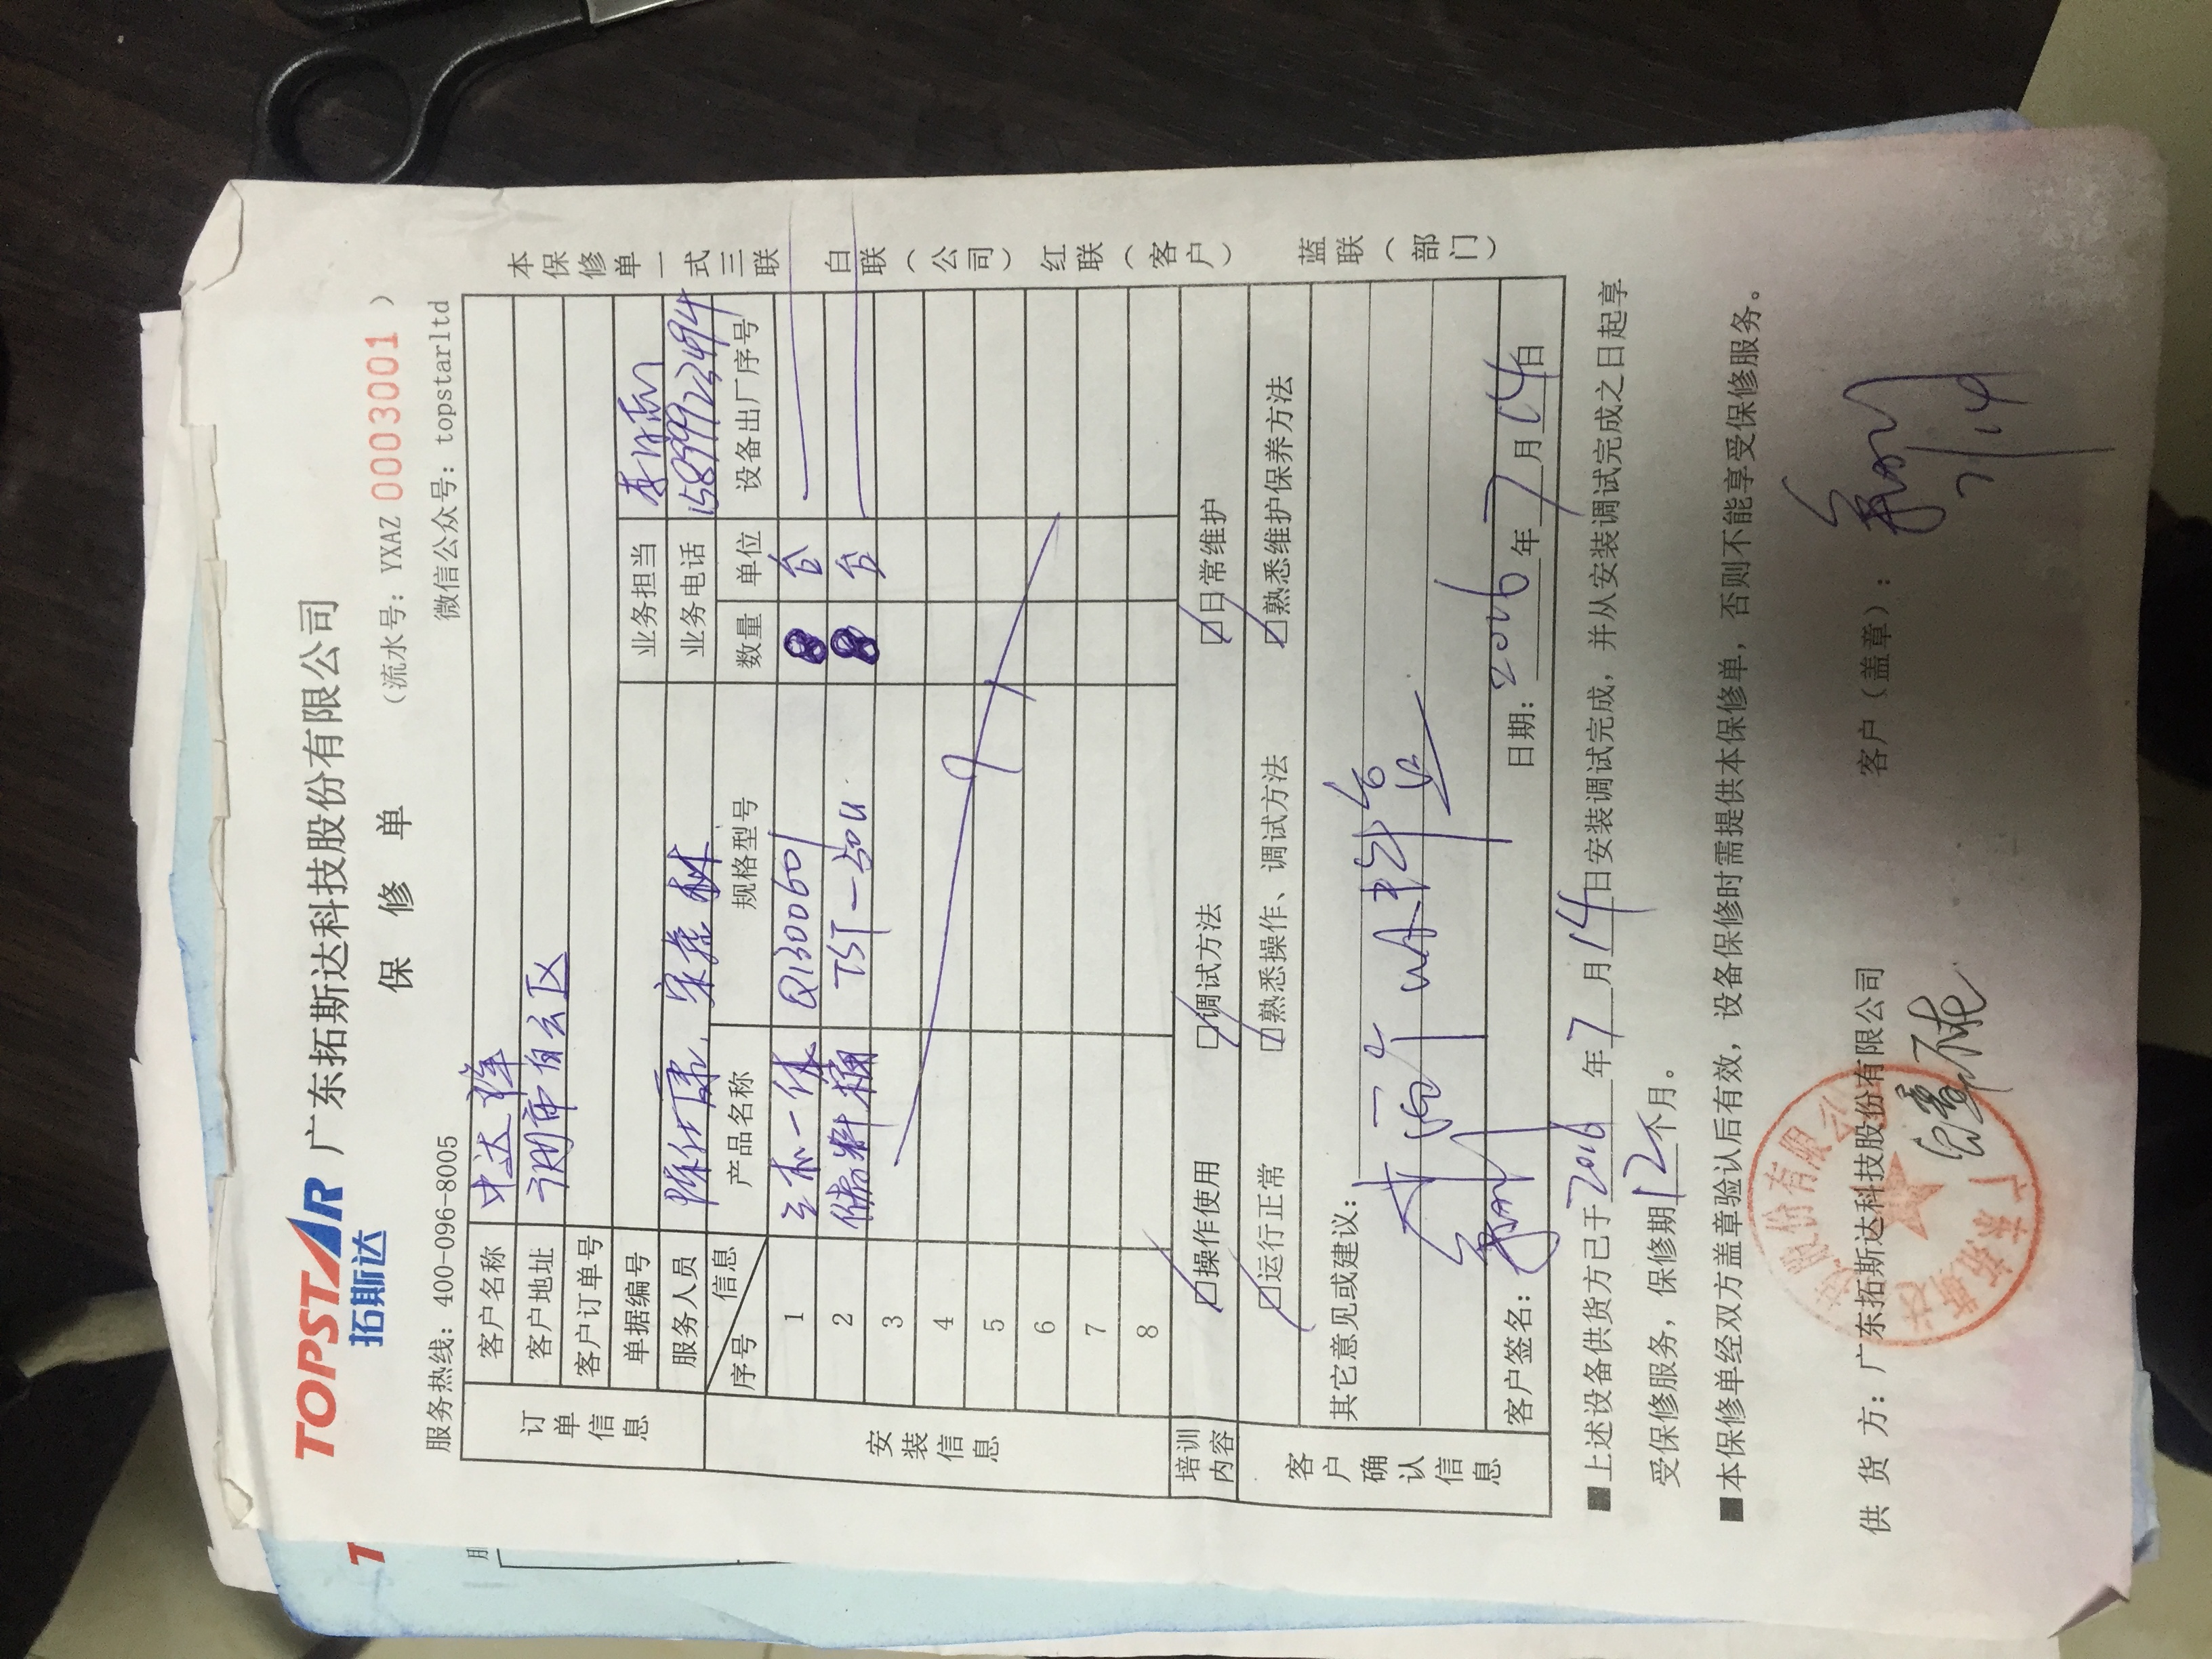 TOPSTAR 广东拓斯达科技股份有限公司
拓斯达
保 修 单
（流水号：YXAZ 0003001 ）
服务热线：400-096-8005
微信公众号：topstarltd
订单信息
客户名称
客户地址 市白云区
客户订单号
单据编号 业务担当
服务人员 业务电话 15899972494
安装信息
序号 信息 产品名称 规格型号 数量 单位 设备出厂序号
1 三机一体 8 台
2 储料桶 TST-50U 8 台
3
4
5
6
7
8
培训内容 ☑操作使用 ☑调试方法 ☑日常维护
客户确认信息
☑运行正常 ☑熟悉操作、调试方法 ☑熟悉维护保养方法
其它意见或建议：
客户签名： 日期：2016年7月14日
■上述设备供货方已于2016年7月14日安装调试完成，并从安装调试完成之日起享
受保修服务，保修期12个月。
■本保修单经双方盖章验认后有效，设备保修时需提供本保修单，否则不能享受保修服务。
供 货 方：广东拓斯达科技股份有限公司 客户（盖章）：
7/14
本保修单一式三联 白联（公司）红联（客户） 蓝联（部门）